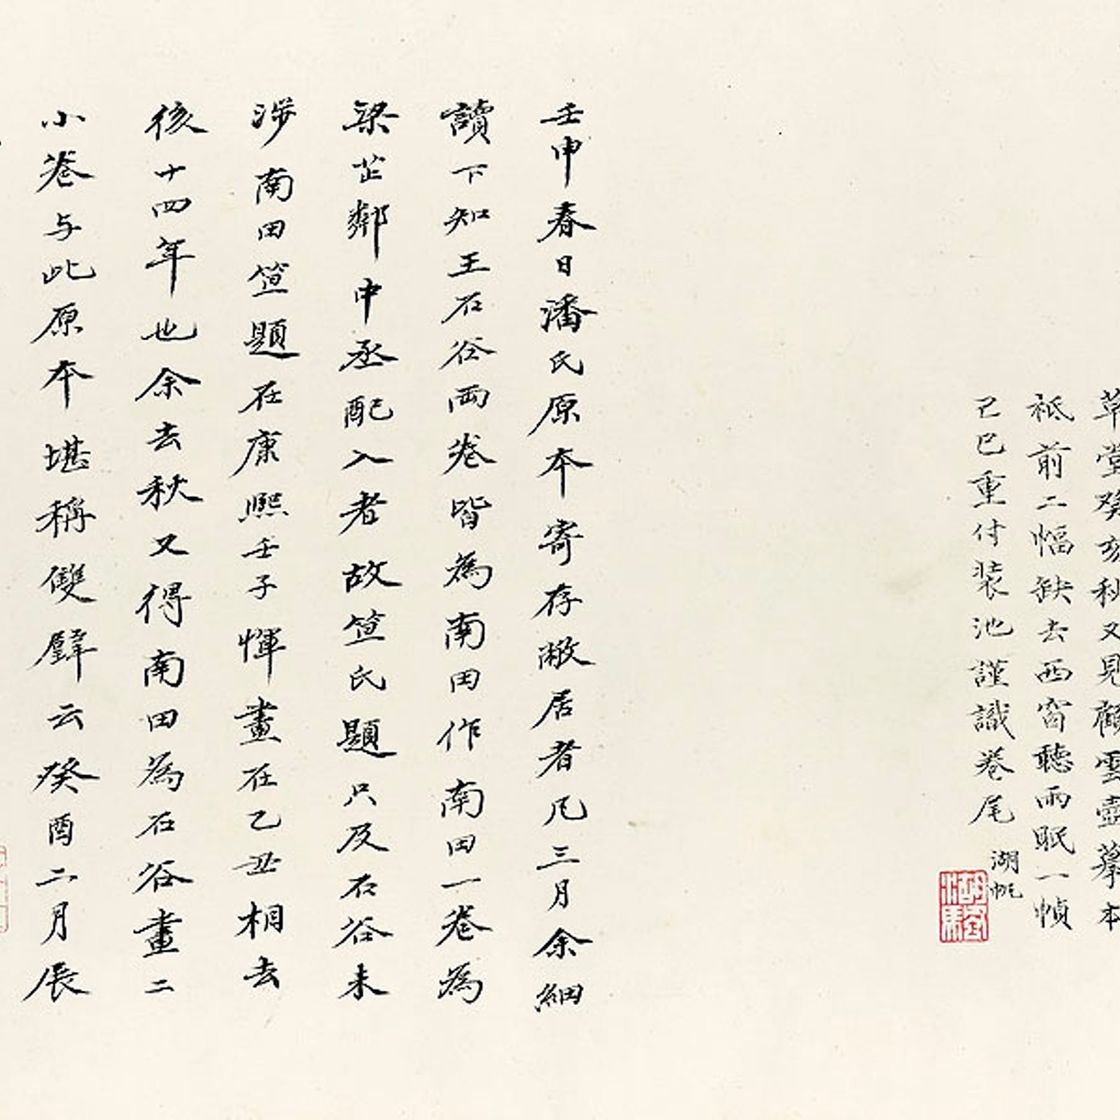 草堂癸亥秋又見顧雲壺摹本
祇前二幅缺去西窗聽雨眠一幀
己巳重付装池謹識卷尾
湖帆
壬申春日潘氏原本寄存敝居者凡三月余細
讀下知王石谷兩卷皆為南田作南田一卷為
梁茝鄰中丞配入者故笪氏題只及石谷未
涉南田笪題在康熙壬子惲畫在乙丑相去
後十四年也余去秋又得南田為石谷畫二
小卷与此原本堪稱雙璧云癸酉二月辰